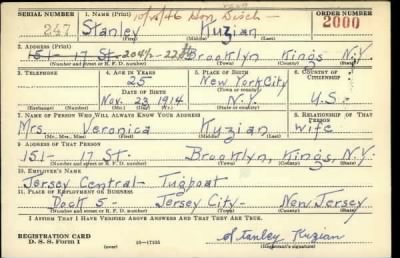 SERIAL NUMBER 1. NAME (Print) ORDER NUMBER
247 Stanley Kuzian 2000
(First) (Middle) (Last)
10/14/46
2. ADDRESS (Print)
151- 17 St. Brooklyn Kings N.Y.
(Number and street or R. F. D. number) (Town) (County) (State)
3. TELEPHONE 4. AGE IN YEARS 5. PLACE OF BIRTH 6. COUNTRY OF CITIZENSHIP
25 New York City
DATE OF BIRTH (Town or county)
Nov. 23 1914 N.Y. U.S.
(Exchange) (Number) (Mo.) (Day) (Yr.) (State or country)
7. NAME OF PERSON WHO WILL ALWAYS KNOW YOUR ADDRESS 8. RELATIONSHIP OF THAT PERSON
Mrs. Veronica Kuzian wife
(Mr., Mrs., Miss) (First) (Middle) (Last)
9. ADDRESS OF THAT PERSON
151- 17 St. Brooklyn, Kings, N.Y.
(Number and street or R. F. D. number) (Town) (County) (State)
10. EMPLOYER'S NAME
Jersey Central- Tugboat
11. PLACE OF EMPLOYMENT OR BUSINESS
Dock 5- Jersey City- New Jersey
(Number and street or R. F. D. number) (Town) (County) (State)
I AFFIRM THAT I HAVE VERIFIED ABOVE ANSWERS AND THAT THEY ARE TRUE.
REGISTRATION CARD Stanley Kuzian
D. S. S. Form 1 (over) 16-17105 (Registrant's signature)